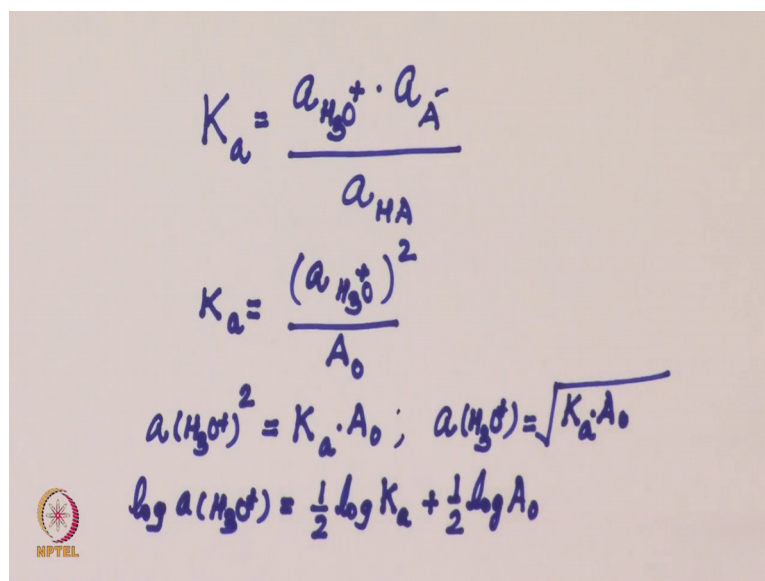 K_a = a_{H_3O^+} · a_{A^-} / a_{HA}
K_a = (a_{H_3O^+})^2 / A_0
a(H_3O^+)^2 = K_a · A_0 ; a(H_3O^+) = √(K_a · A_0)
log a(H_3O^+) = 1/2 log K_a + 1/2 log A_0
NPTEL